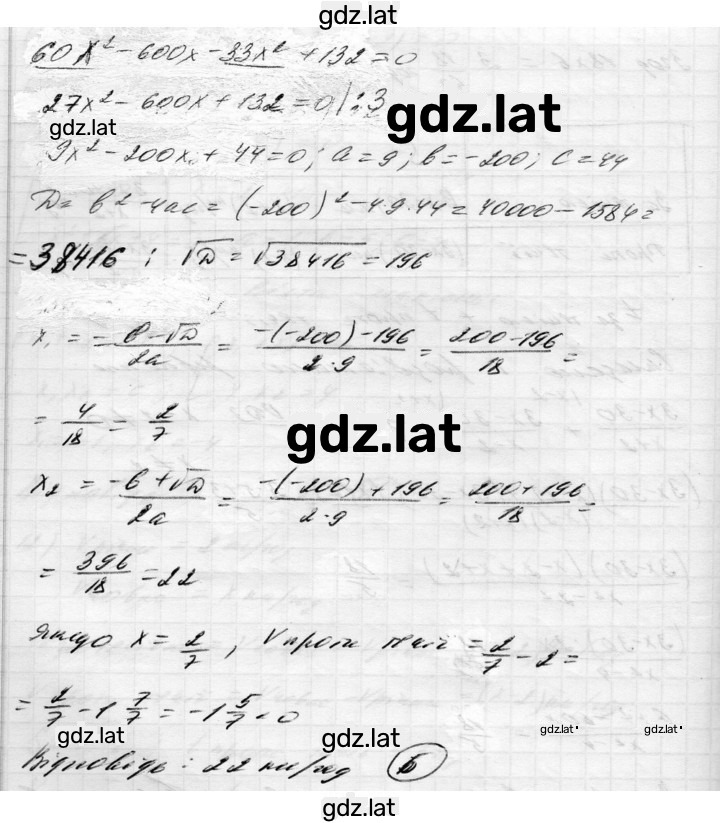 gdz.lat
60x² - 600x - 33x² + 132 = 0
27x² - 600x + 132 = 0 | : 3
gdz.lat
gdz.lat
9x² - 200x + 44 = 0; a = 9; b = -200; c = 44
D = b² - 4ac = (-200)² - 4·9·44 = 40000 - 1584 =
= 38416 ; √D = √38416 = 196
x₁ = -b - √D / 2a = -(-200) - 196 / 2·9 = 200 - 196 / 18 =
= 4/18 = 2/7
gdz.lat
x₂ = -b + √D / 2a = -(-200) + 196 / 2·9 = 200 + 196 / 18 =
= 396/18 = 22
Якщо x = 2/7, V проти течії = 2/7 - 2 =
= 2/7 - 1 7/7 = -1 5/7 < 0
gdz.lat
gdz.lat
gdz.lat
gdz.lat
Відповідь: 22 км/год Б
gdz.lat